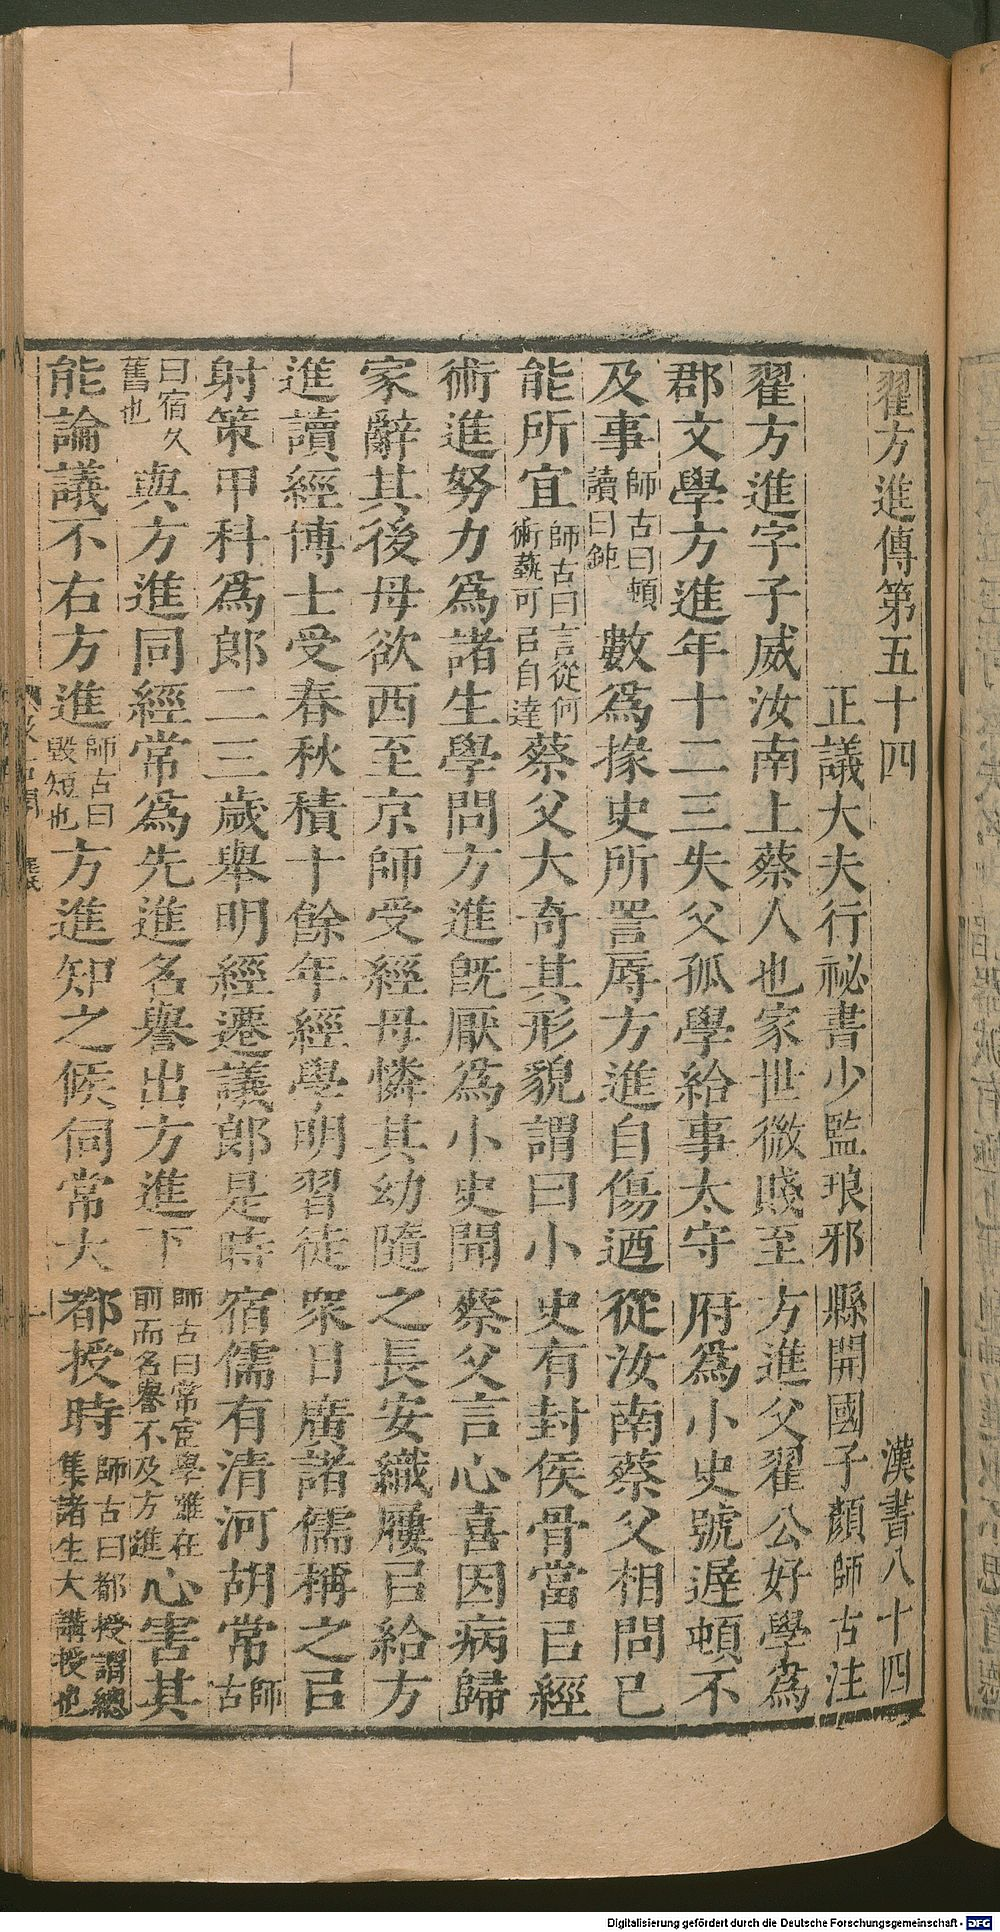 翟方進傳第五十四　漢書八十四
正議大夫行祕書少監琅邪縣開國子顏師古注
翟方進字子威汝南上蔡人也家世微賤至方進父翟公好學為
郡文學方進年十二三失父孤學給事太守府為小史號遲頓不
及事師古曰頓讀曰鈍數為掾史所詈辱方進自傷迺從汝南蔡父相問已
能所宜師古曰言從何術藝可㠯自達蔡父大奇其形貌謂曰小史有封侯骨當㠯經
術進努力為諸生學問方進旣厭為小史聞蔡父言心喜因病歸
家辭其後母欲西至京師受經母憐其幼隨之長安織屨㠯給方
進讀經博士受春秋積十餘年經學明習徒衆日廣諸儒稱之㠯
射策甲科為郎二三歲舉明經遷議郎是時宿儒有清河胡常師古
曰宿久舊也與方進同經常為先進名譽出方進下師古曰常宦學雖在前而名譽不及方進心害其
能論議不右方進師古曰毀短也方進知之候伺常大都授時師古曰都授謂總集諸生大講授也
Digitalisierung gefördert durch die Deutsche Forschungsgemeinschaft - DFG